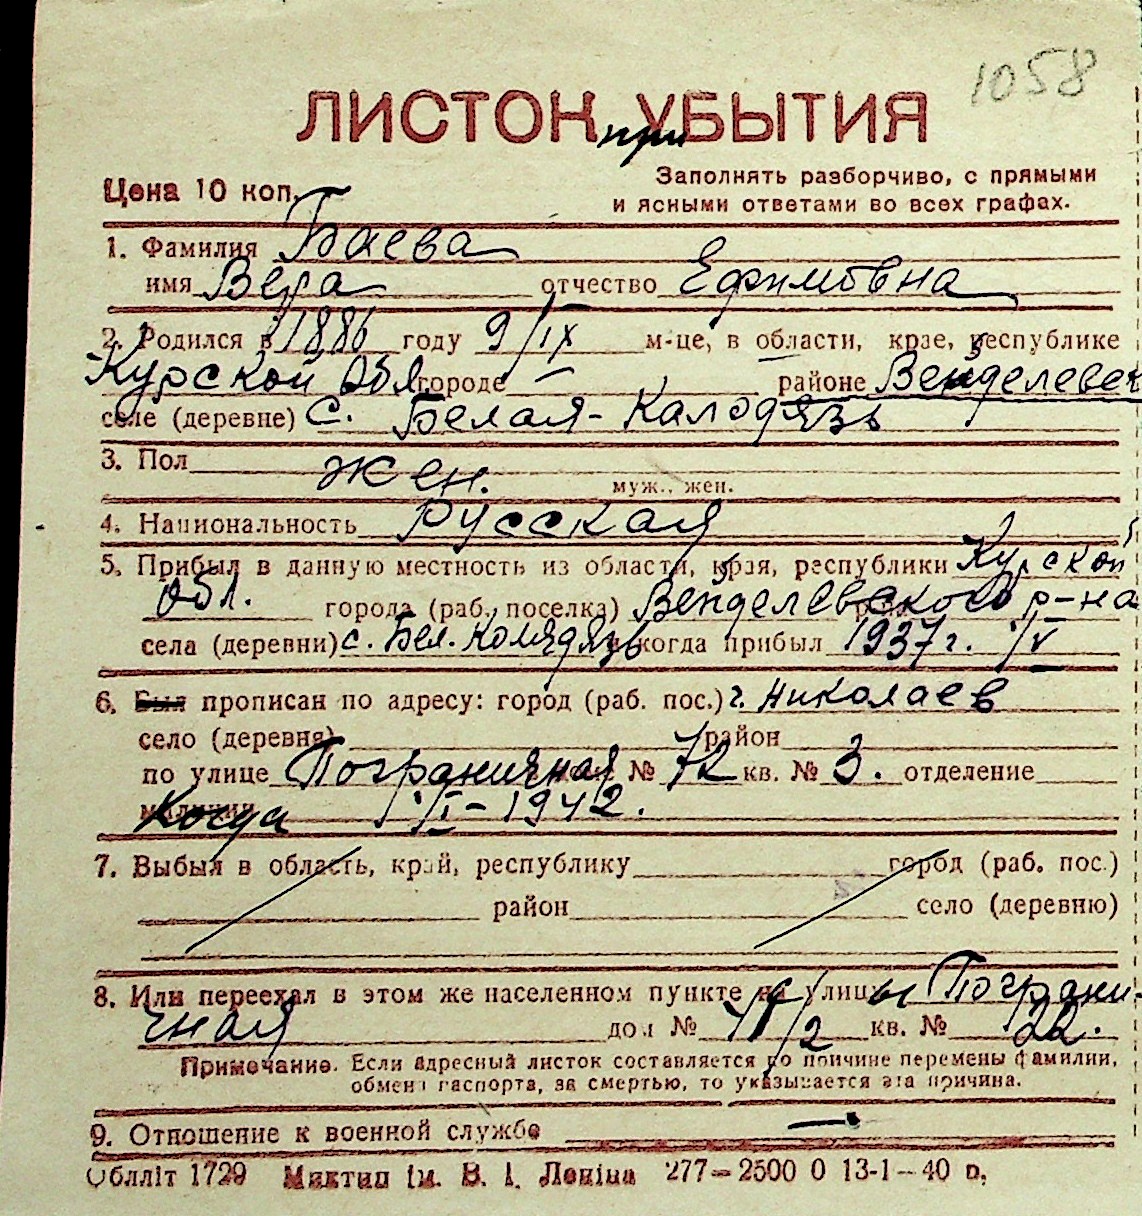 1058
ЛИСТОК УБЫТИЯ
при
Цена 10 коп.
Заполнять разборчиво, с прямыми
и ясными ответами во всех графах.
1. Фамилия Баева
имя Вера отчество Ефимовна
2. Родился в 1886 году 9/IX м-це, в области, крае, республике
Курской Обл городе — районе Вейделевск
селе (деревне) с. Белая-Калодязь
3. Пол жен.
муж., жен.
4. Национальность русская
5. Прибыл в данную местность из области, края, республики Курской
Обл. города (раб. поселка) Вейделевского р-на
села (деревни) с. Бел. Колядязь и когда прибыл 1937 г.
6. Был прописан по адресу: город (раб. пос.) г. Николаев
село (деревня) район
по улице Пограничная № 72 кв. № 3. отделение
милиции Когда 1942.
7. Выбыл в область, край, республику город (раб. пос.)
район село (деревню)
8. Или переехал в этом же населенном пункте на улицу Погранич
чная дом № кв. № 22.
Примечание. Если адресный листок составляется по причине перемены фамилии,
обмена паспорта, за смертью, то указывается эта причина.
9. Отношение к военной службе —
Облліт 1729 Миктип ім. В. І. Леніна 277—2500 0 13-1-40 р.